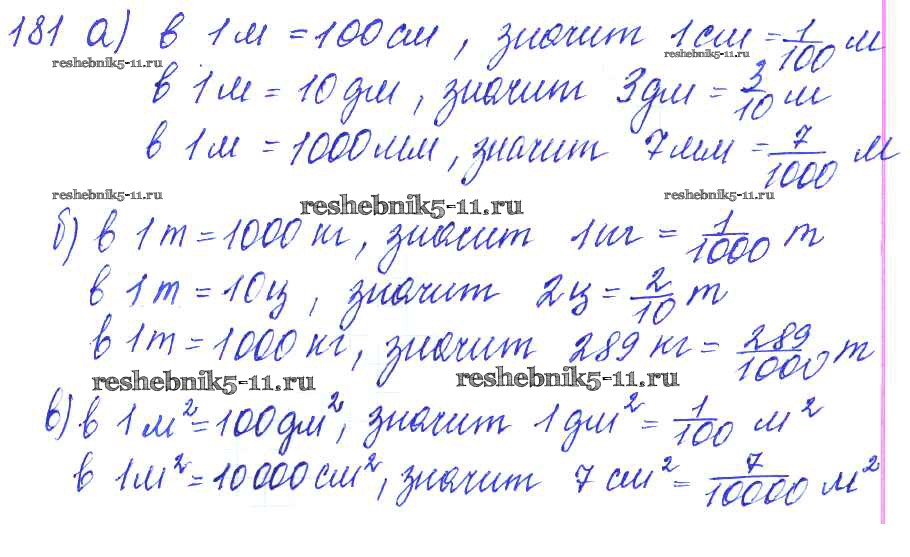 181 а) в 1м = 100см, значит 1см = 1/100 м
reshebnik5-11.ru reshebnik5-11.ru
в 1м = 10дм, значит 3дм = 3/10 м
в 1м = 1000мм, значит 7мм = 7/1000 м
reshebnik5-11.ru reshebnik5-11.ru reshebnik5-11.ru
б) в 1т = 1000кг, значит 1кг = 1/1000 т
в 1т = 10ц, значит 2ц = 2/10 т
в 1т = 1000кг, значит 289кг = 289/1000 т
reshebnik5-11.ru reshebnik5-11.ru
в) в 1м² = 100дм², значит 1дм² = 1/100 м²
в 1м² = 10000см², значит 7см² = 7/10000 м²